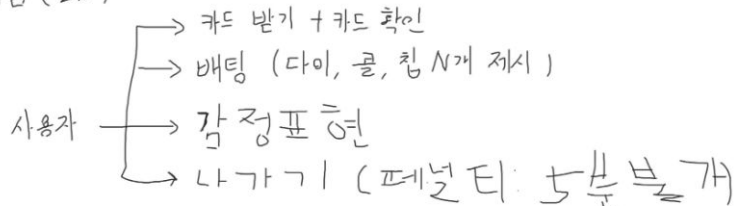 카드 받기 + 카드 확인
배팅 (다이, 콜, 칩 N개 제시)
사용자
감정표현
나가기 (페널티: 5분 불가)